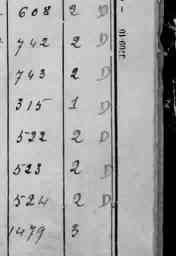 608 2 D
742 2 D
743 2 D
315 1 D
522 2 D
523 2 D
524 2 D
1479 3